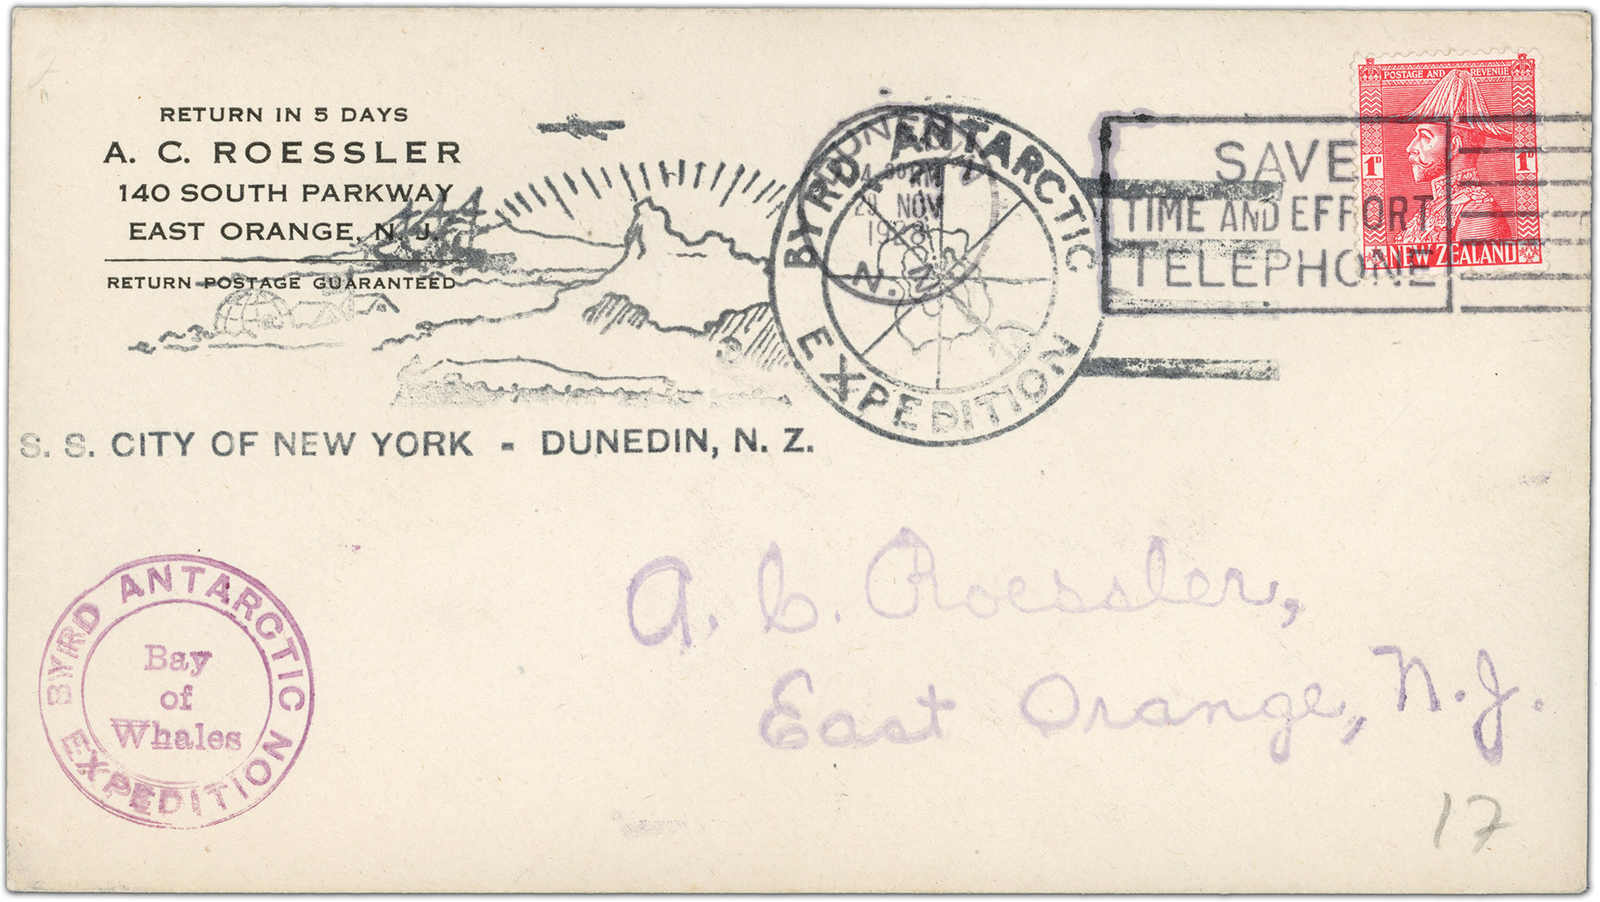 RETURN IN 5 DAYS
A. C. ROESSLER
140 SOUTH PARKWAY
EAST ORANGE, N. J.
RETURN POSTAGE GUARANTEED
BYRD ANTARCTIC
EXPEDITION
DUNEDIN
4 30 PM
29 NOV
1928
N. Z.
SAVE
TIME AND EFFORT
TELEPHONE
POSTAGE AND REVENUE
1D 1D
NEW ZEALAND
S. S. CITY OF NEW YORK - DUNEDIN, N. Z.
BYRD ANTARCTIC
Bay
of
Whales
EXPEDITION
A. C. Roessler,
East Orange, N. J.
17